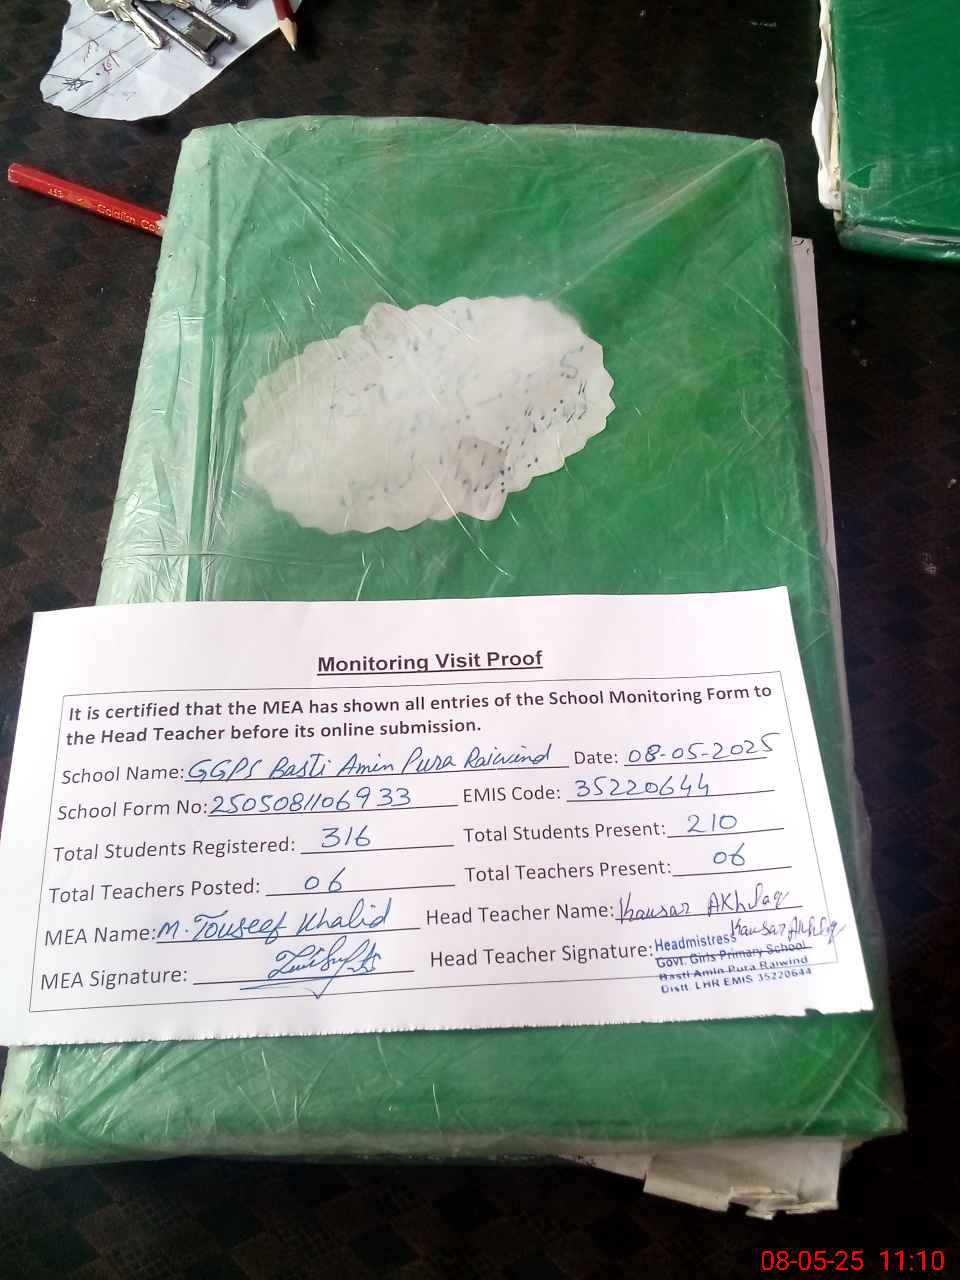 Goldfish Co
Monitoring Visit Proof
It is certified that the MEA has shown all entries of the School Monitoring Form to
the Head Teacher before its online submission.
School Name: GGPS Basti Amin Pura Raiwind Date: 08-05-2025
School Form No: 2505081106933 EMIS Code: 35220644
Total Students Registered: 316 Total Students Present: 210
Total Teachers Posted: 06 Total Teachers Present: 06
MEA Name: M. Touseef Khalid Head Teacher Name: Kausar AKhlaq
MEA Signature: Head Teacher Signature: Kausar Akhlaq
Headmistress
Govt. Girls Primary School
Basti Amin Pura Raiwind
Distt. LHR EMIS 35220644
08-05-25 11:10